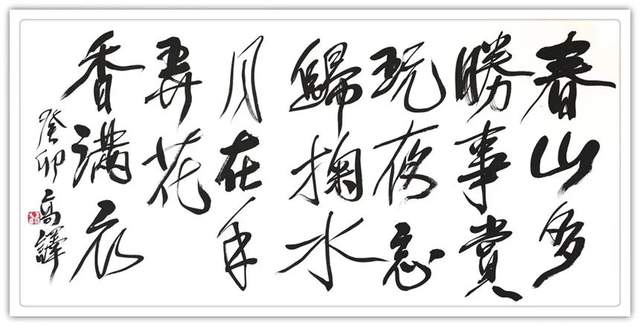 春山多
勝事賞
玩夜忘
歸掬水
月在手
弄花
香滿衣
癸卯高譯